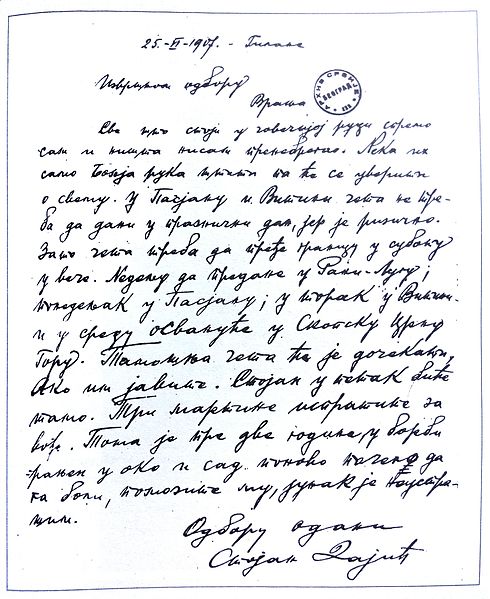 25.-VI-1907. - Гилане
Извршном одбору
Врања
АРХИВ СРБИЈЕ
БЕОГРАД
Све што стоји у човечијој руци спремо
сам и ништа нисам пренебрегао. Нека их
само Божја рука штити па ће се уверити
о свему. У Пасјану и Витини чета не тре-
ба да дани у празнични дан, јер је ризично.
Зато чета треба да пређе границу у суботу
у вече. Недељу да предане у Рани-Лугу;
понедељак у Пасјану; у торак у Витини
и у среду освануће у Скопску Црну
Гору. Тамошња чета ће је дочекати,
Ако им јавите. Стојан у петак биће
тамо. Три мартине испратите за
вође. Тома је пре две године, у борби
рањен у око и сад поново почело да
га боли, помозите му, јунак је
Одбору одани
Стојан Дајић